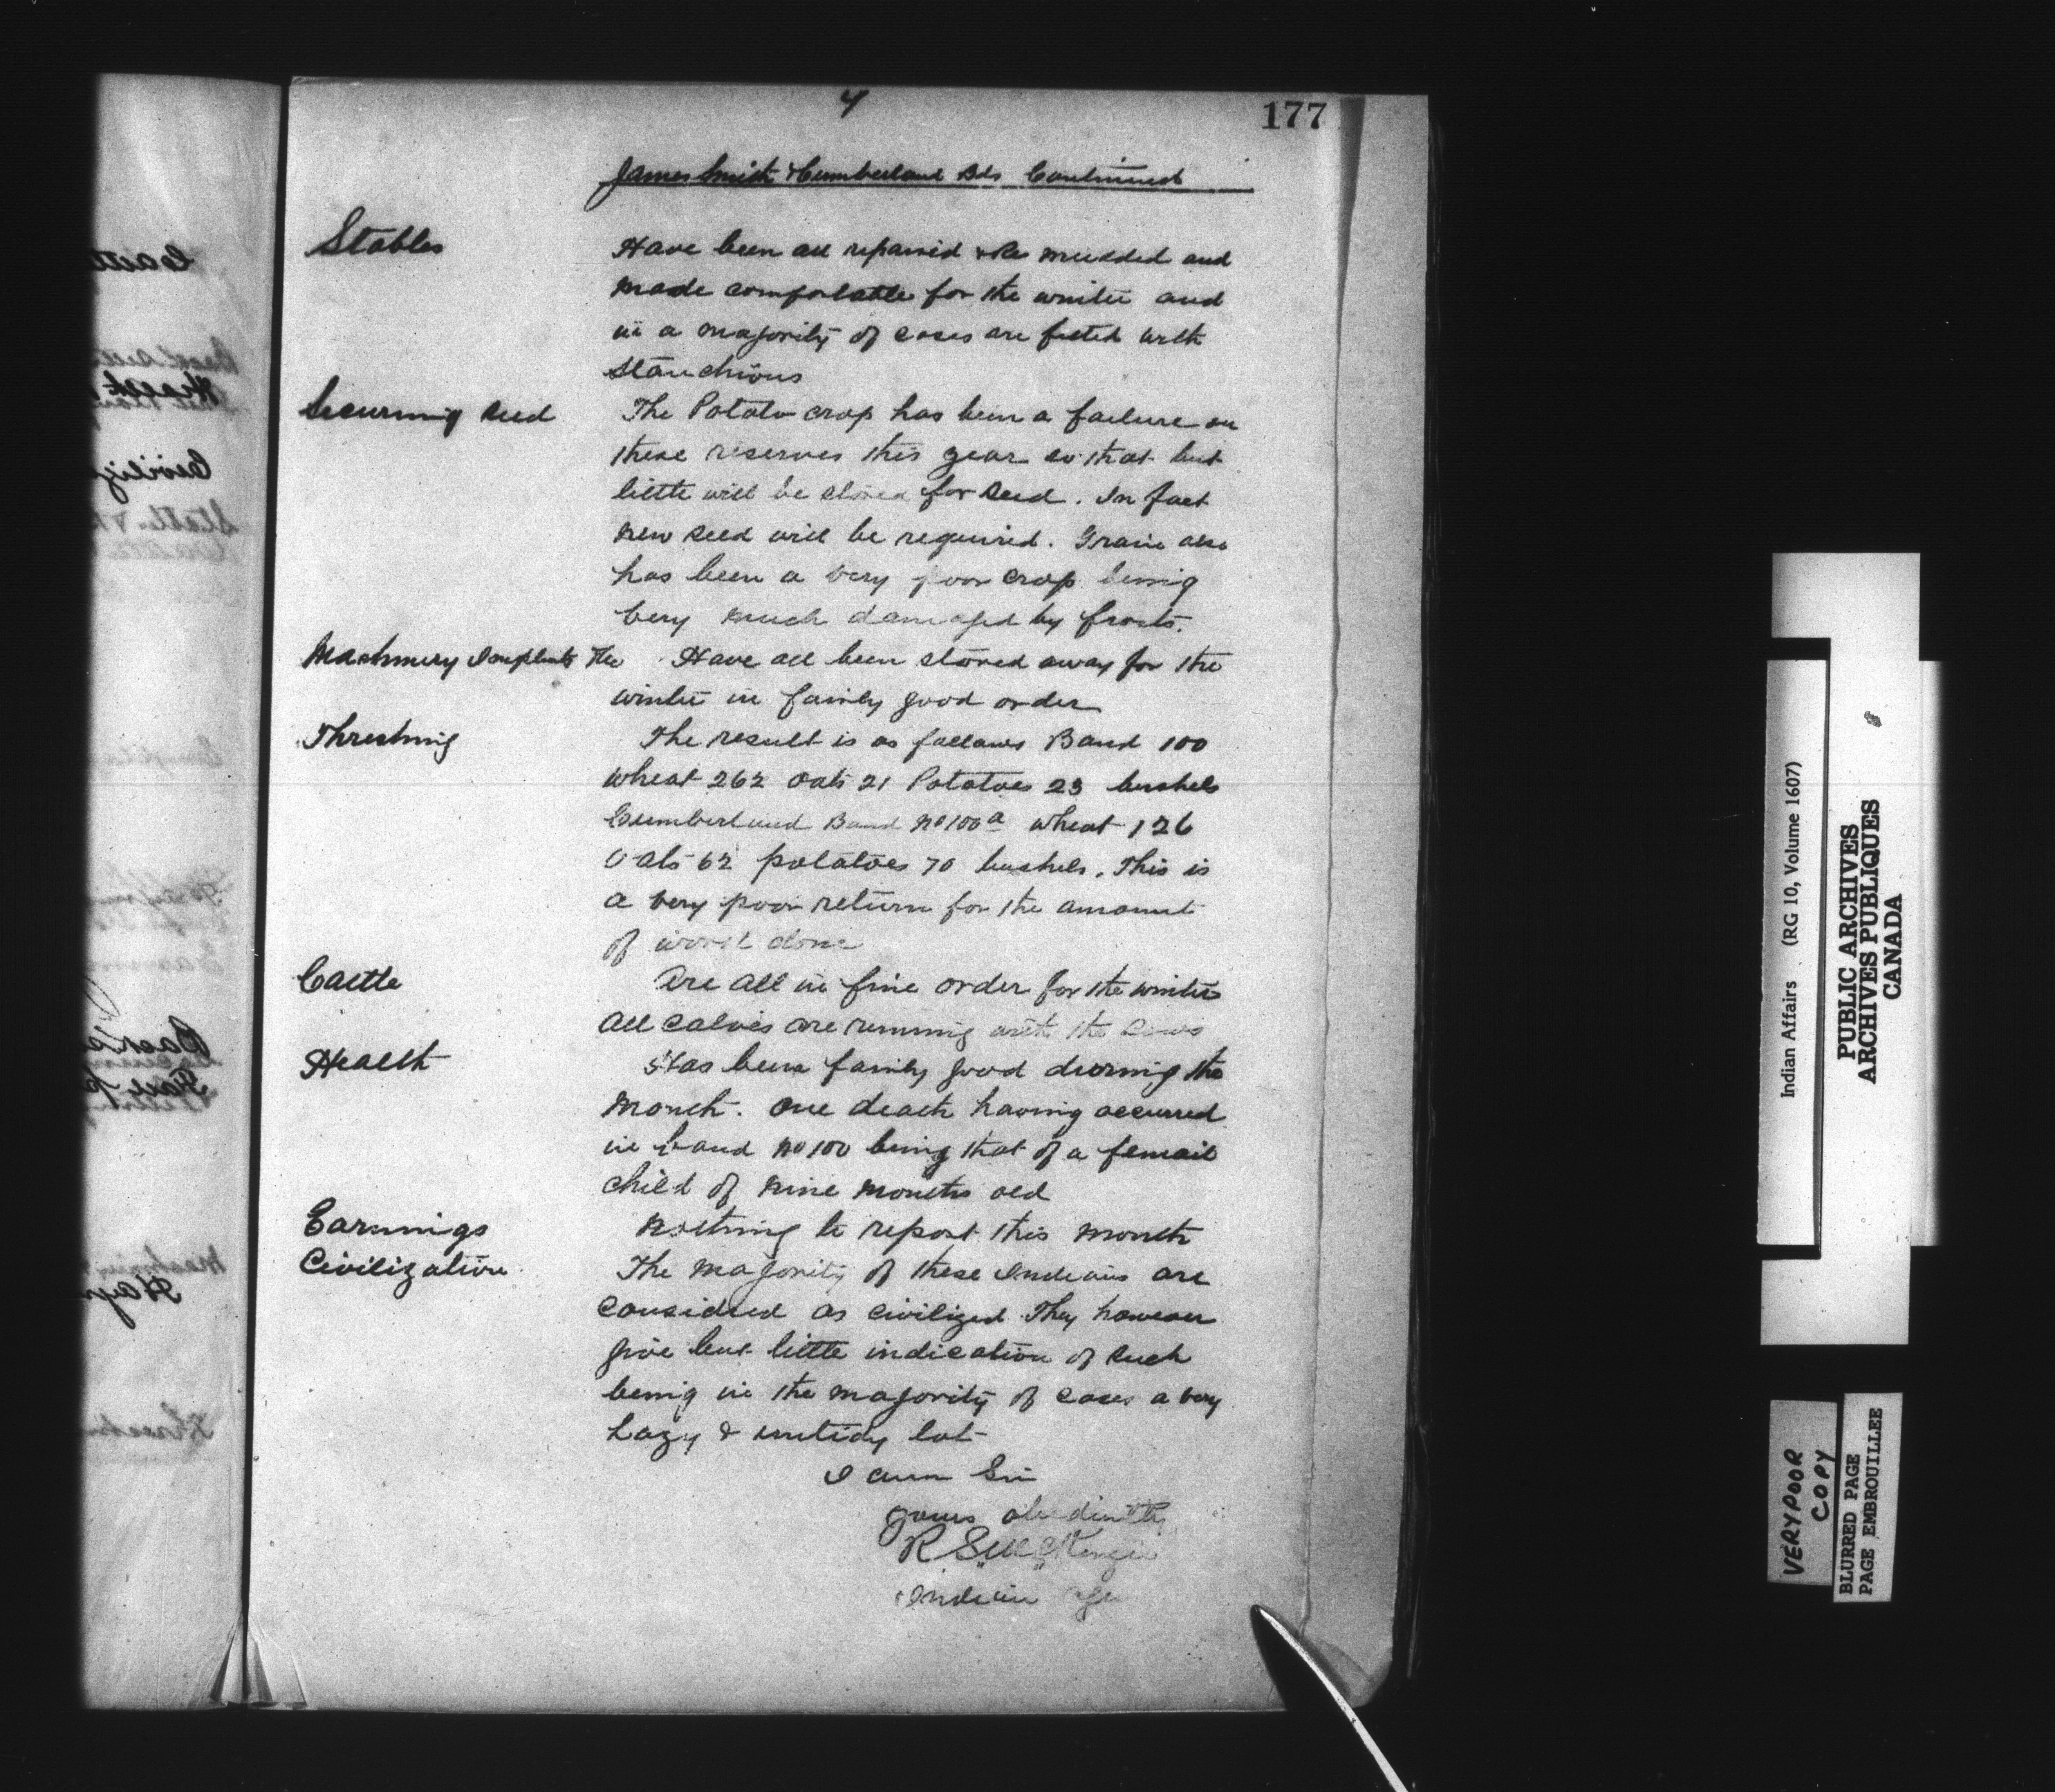 4
177
James Smith & Cumberland Bds Continued
Stables Have been all repaired & Re mudded and
made comfortable for the winter and
in a majority of cases are fitted with
Stanchions
Securing seed The Potato crop has been a failure on
these reserves this year so that but
little will be stored for seed. In fact
new seed will be required. Grain also
has been a very poor crop being
very much damaged by frosts.
Machinery Implmts &c Have all been stored away for the
winter in fairly good order
Threshing The result is as follows Band 100
wheat 262 oats 21 Potatoes 23 bushels
Cumberland Band No 100a wheat 126
Oats 62 potatoes 70 bushels. This is
a very poor return for the amount
of work done
Cattle Are all in fine order for the winter
all calves are running with the cows
Health Has been fairly good during the
month. One death having occurred
in band No 100 being that of a femail
child of nine months old
Earnings Nothing to report this month
Civilization The majority of these Indians are
considered as civilized They however
give but little indication of such
being in the majority of cases a very
Lazy & untidy lot
I am Sir
yours obediently
R S McKenzie
Indian Agent
Indian Affairs (RG 10, Volume 1607)
PUBLIC ARCHIVES
ARCHIVES PUBLIQUES
CANADA
VERY POOR
COPY
BLURRED PAGE
PAGE EMBROUILLEE